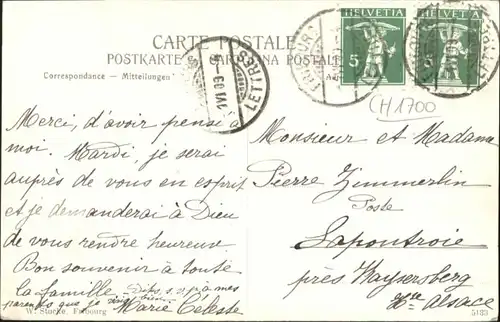 HELVETIA HELVETIA
5 5
CARTE POSTALE
POSTKARTE POSTALE
Correspondance — Mitteilungen
LETTRES
CH1700
Merci, d'avoir pensé à
moi. Mardi, je serai
auprès de vous en esprit
et je demanderai à Dieu
de vous rendre heureuse.
Bon souvenir à toute
la famille. Dites, s.v.p. à mes
parents que je vais bien.
Marie Céleste
Monsieur et Madame
Pierre Zimmerlin
Poste
Lapoutroie
près Kaysersberg
Hte Alsace
W. Stucke, Fribourg
5183